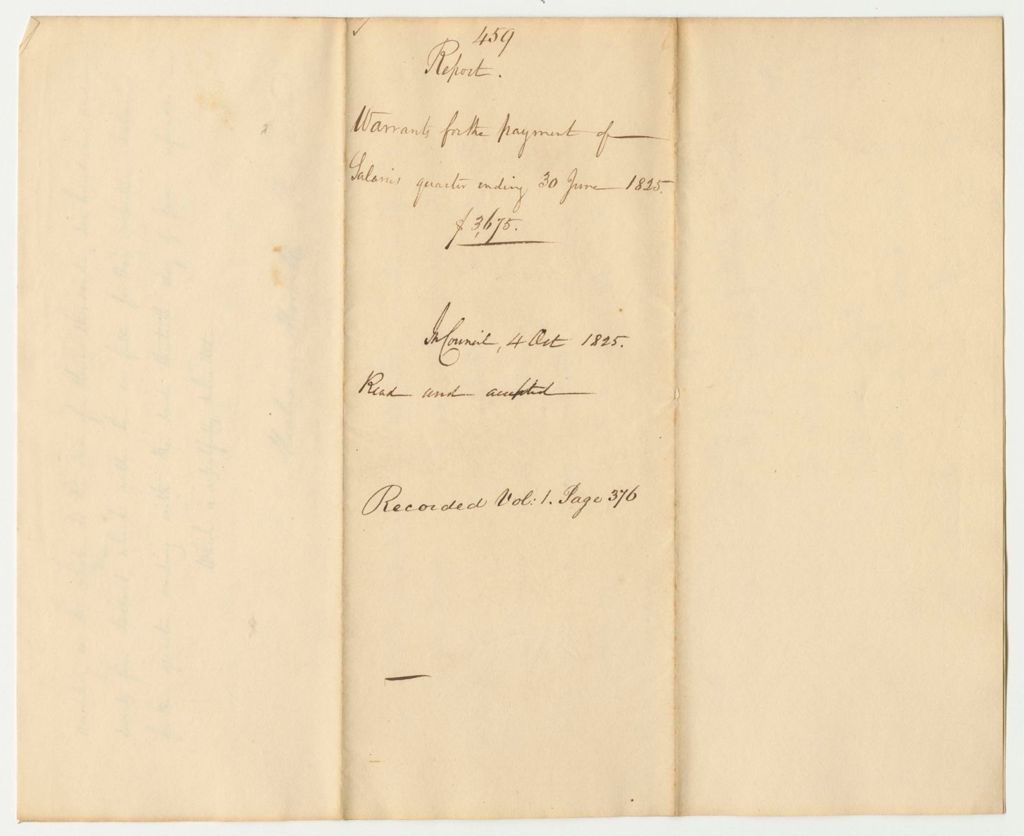 459
Report.
Warrants for the payment of
Salaries quarter ending 30 June 1825.
$3,675.
In Council, 4 Oct 1825.
Read and accepted
Recorded Vol: 1. Page 376